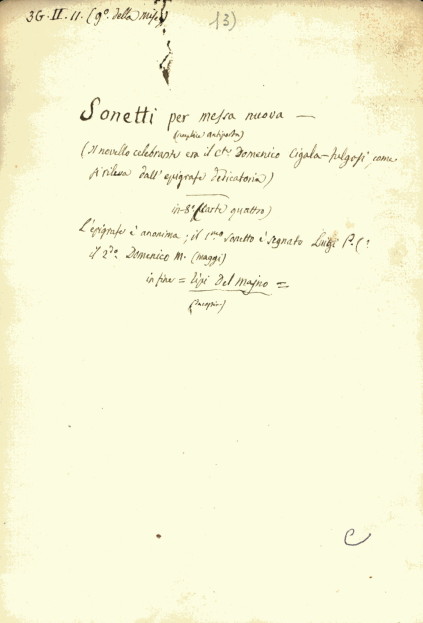 3G. II. 11. (9°. della misc.)
13)
Sonetti per messa nuova —
(semplice antiporta)
(Il novello celebrante era il Cte. Domenico Cigala-Fulgosi, come
si rileva dall'epigrafe dedicatoria)
in-8° (carte quattro)
L'epigrafe è anonima; il 1mo sonetto è segnato Luigi P. (?
il 2do. Domenico M. (maggi)
in fine = Tipi Del Majno =
C